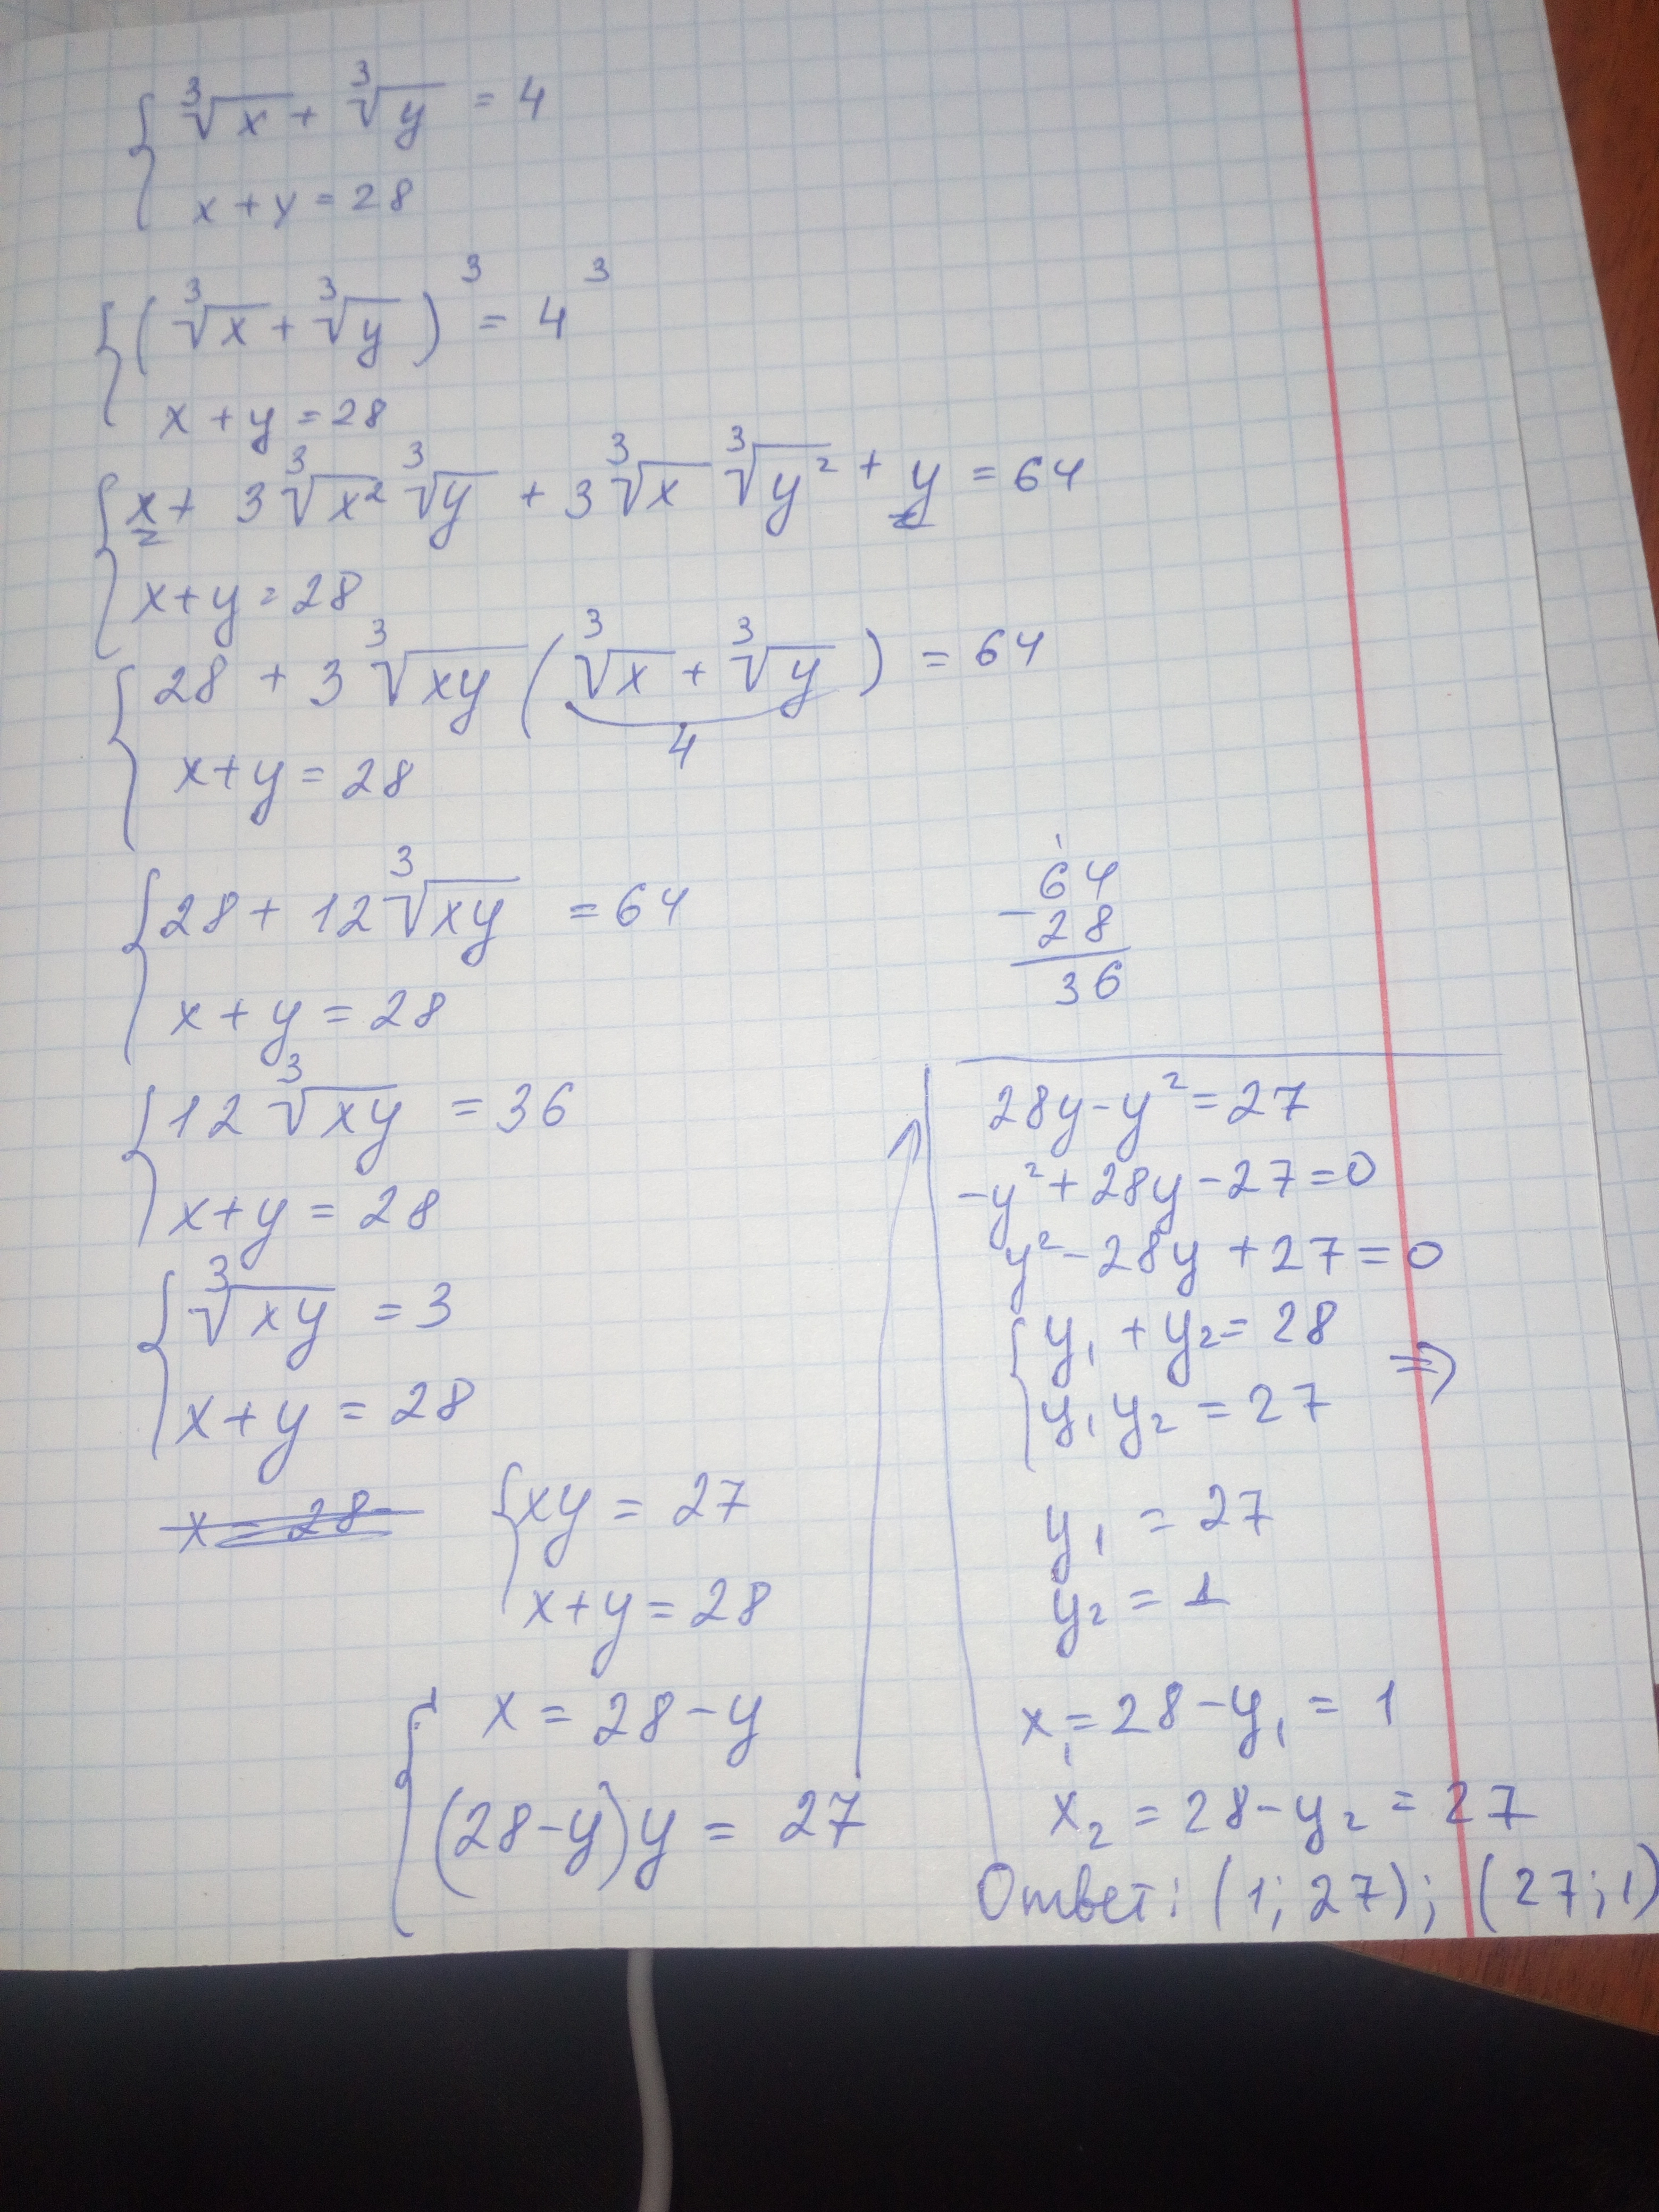 { ∛x + ∛y = 4
x + y = 28
{ (∛x + ∛y)³ = 4³
x + y = 28
{ x + 3∛x² ∛y + 3∛x ∛y² + y = 64
x + y = 28
{ 28 + 3∛xy (∛x + ∛y) = 64
4
x + y = 28
{ 28 + 12∛xy = 64
x + y = 28
{ 12∛xy = 36
x + y = 28
{ ∛xy = 3
x + y = 28
x = 28
{ xy = 27
x + y = 28
{ x = 28 - y
(28 - y)y = 27
1
- 64
28
36
28y - y² = 27
-y² + 28y - 27 = 0
y² - 28y + 27 = 0
{ y₁ + y₂ = 28
y₁ y₂ = 27 ⇒
y₁ = 27
y₂ = 1
x₁ = 28 - y₁ = 1
x₂ = 28 - y₂ = 27
Ответ: (1; 27); (27; 1)